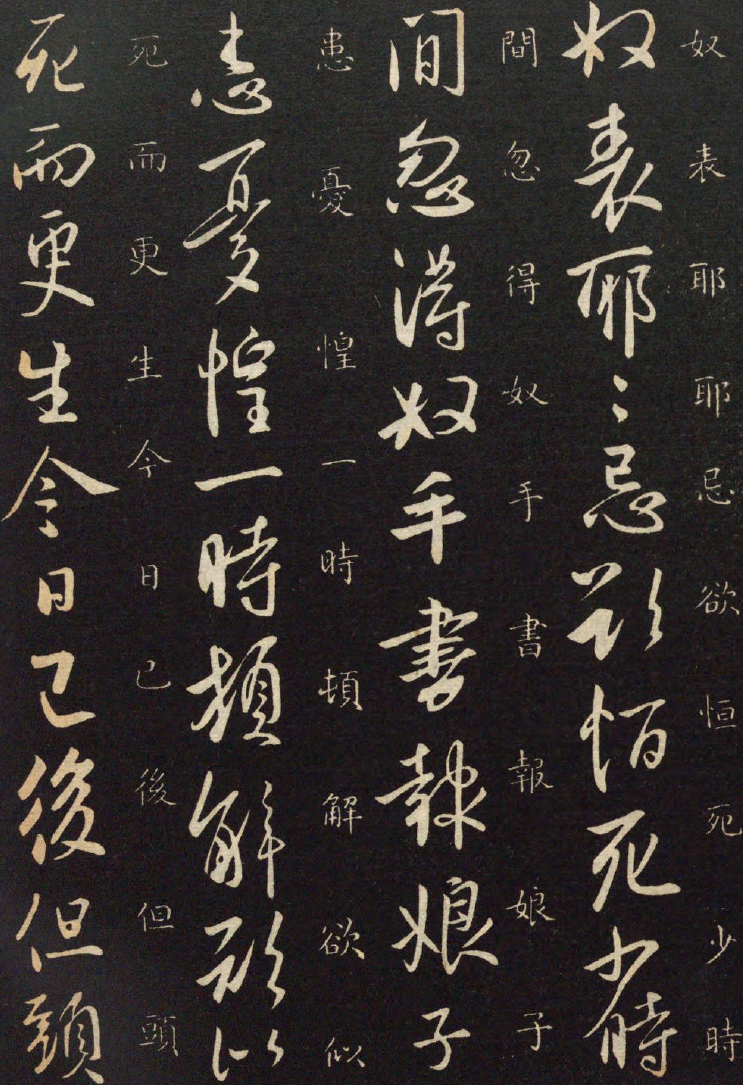 奴表耶耶忌欲恒死少時
奴表耶〻忌欲恒死少時
間忽得奴手書報娘子
間忽得奴手書報娘子
患憂惶一時頓解欲似
患憂惶一時頓解欲似
死而更生今日已後但頭
死而更生今日已後但頭